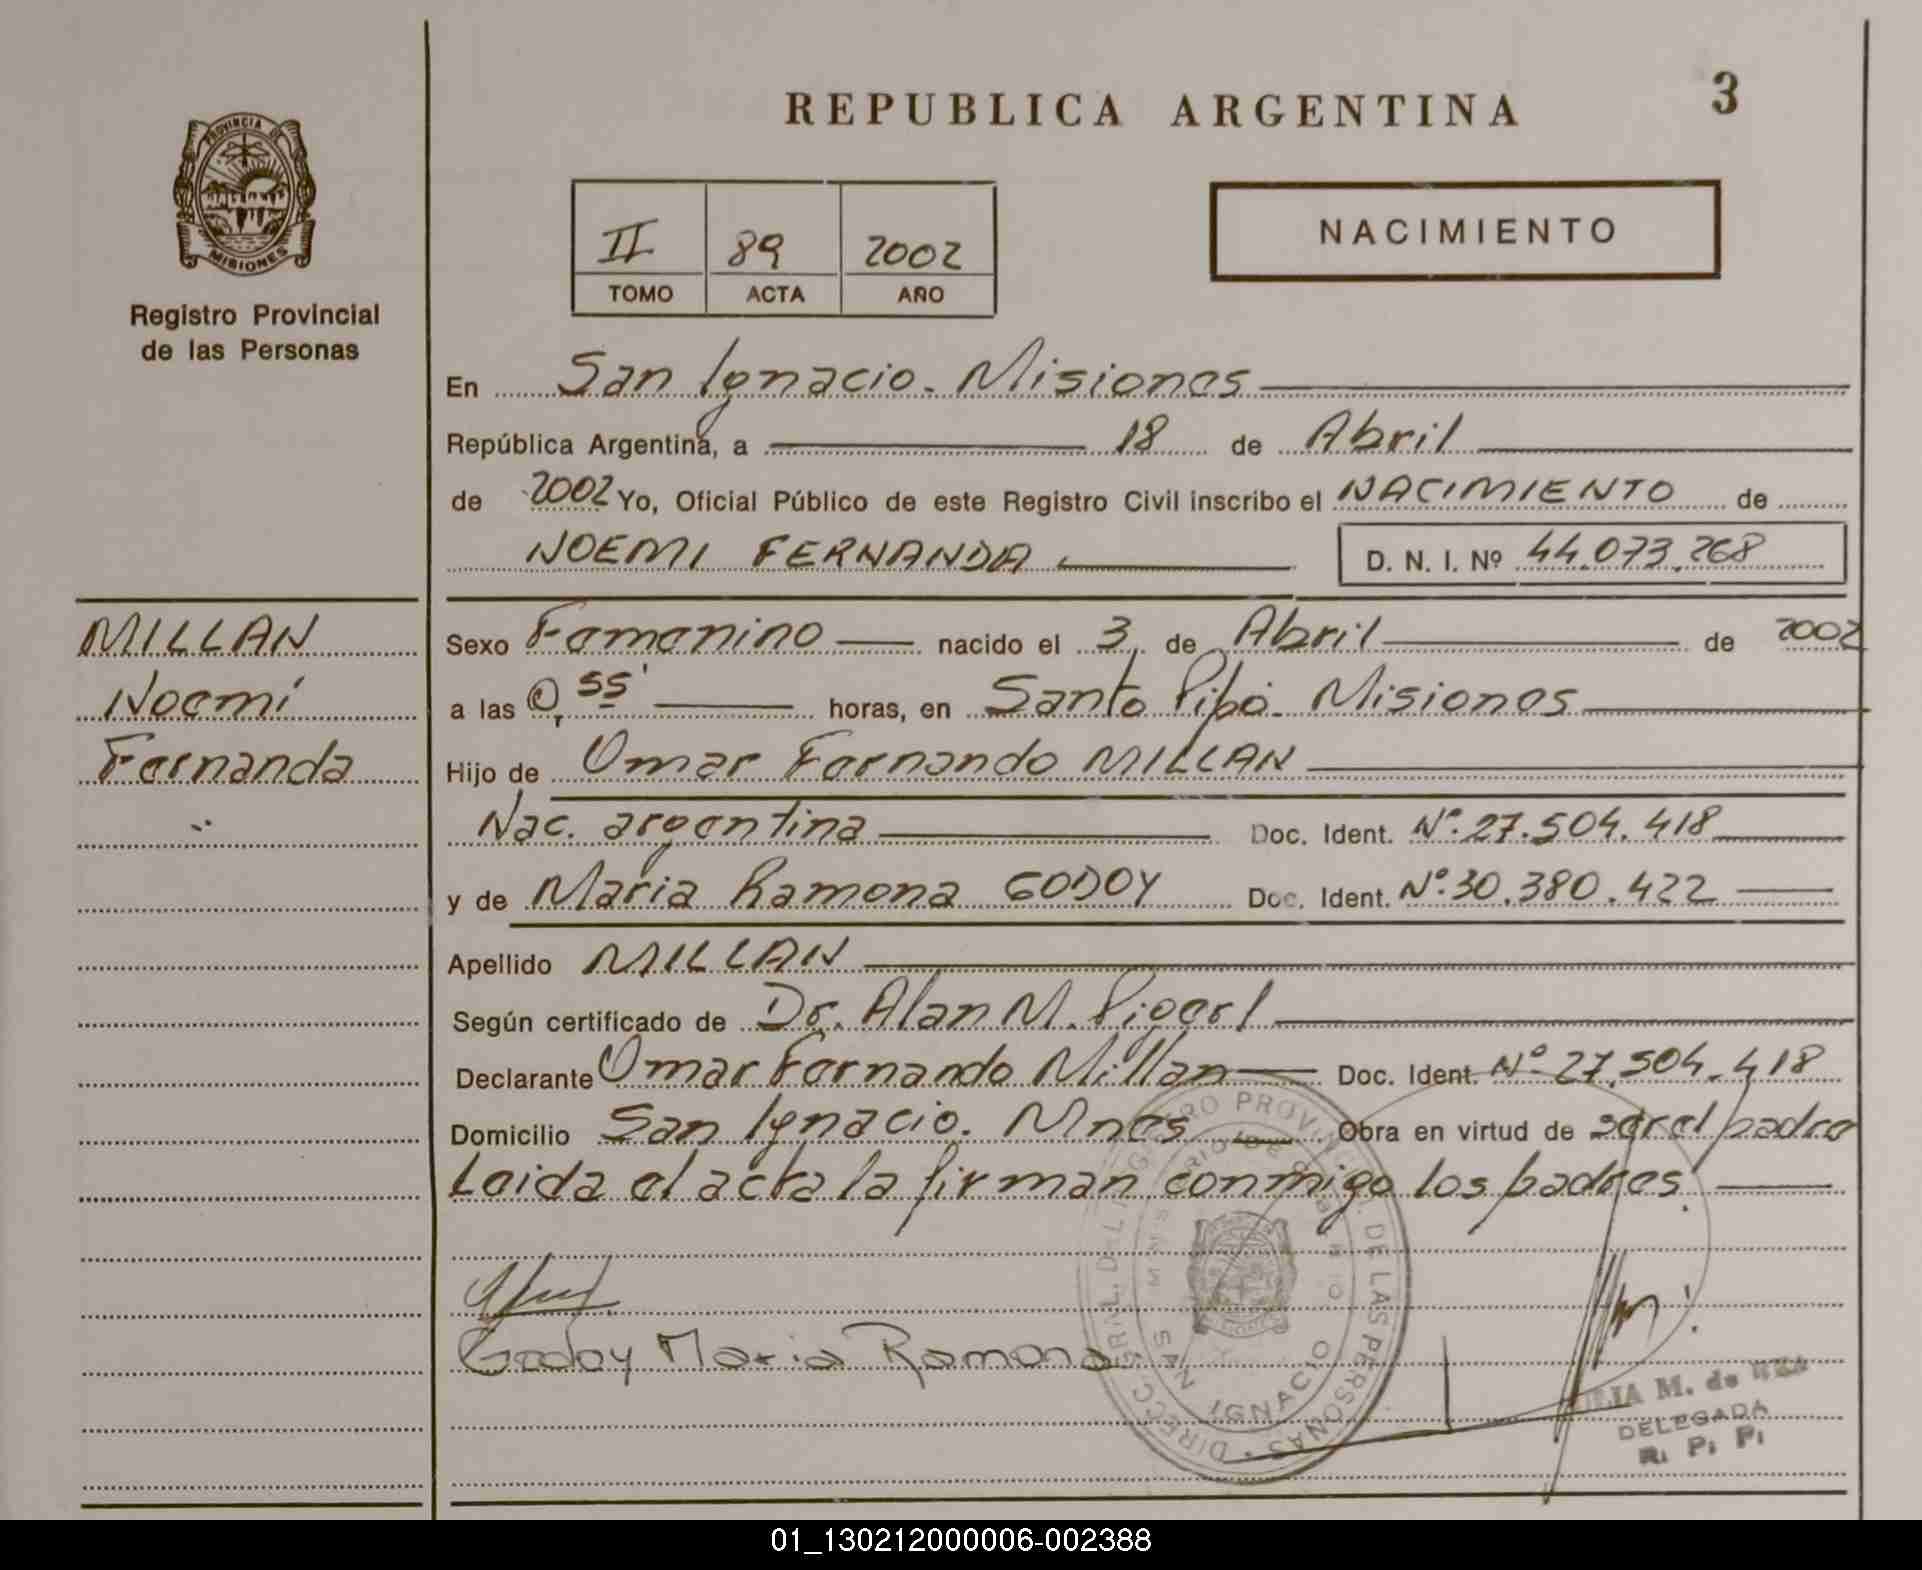 REPUBLICA ARGENTINA
3
PROVINCIA DE
MISIONES
Registro Provincial
de las Personas
II 89 2002
TOMO ACTA AÑO
NACIMIENTO
En San Ignacio. Misiones
República Argentina, a 18 de Abril
de 2002 Yo, Oficial Público de este Registro Civil inscribo el NACIMIENTO de
NOEMI FERNANDA D. N. I. Nº 44.073.268
MILLAN
Noemí
Fernanda
Sexo Femenino nacido el 3 de Abril de 2002
a las 0,55' horas, en Santo Pipó. Misiones
Hijo de Omar Fernando MILLAN
Nac. argentina Doc. Ident. Nº.27.504.418
y de Maria Ramona GODOY Doc. Ident. Nº.30.380.422
Apellido MILLAN
Según certificado de Dr. Alan M.
Declarante Omar Fernando Millan Doc. Ident. Nº 27.504.418
Domicilio San Ignacio. Mnes Obra en virtud de ser el padre
Leida el acta la firman conmigo los padres.
Godoy Maria Ramona
DE LAS PERSONAS
SAN IGNACIO
M. de
DELEGADA
R. P. P.
01_130212000006-002388